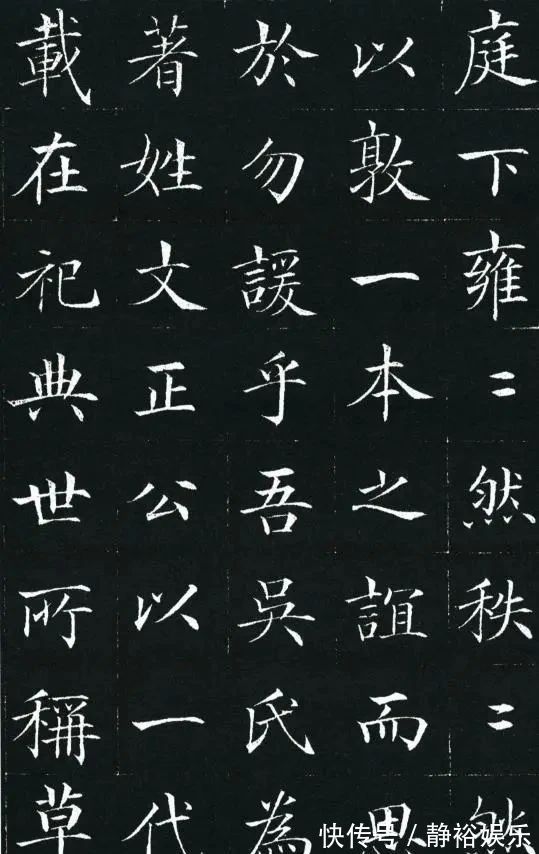 庭下雍〻然秩〻然
以敦一本之誼而思
於勿諼乎吾吳氏為
著姓文正公以一代
載在祀典世所稱草
快传号/静裕娱乐